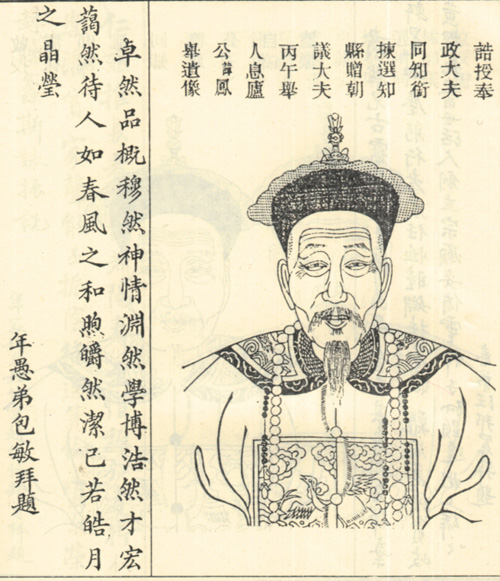 誥授奉
政大夫
同知銜
揀選知
縣贈朝
議大夫
丙午舉
人息廬
公諱鳳
舉遺像
卓然品概穆然神情淵然學博浩然才宏
藹然待人如春風之和煦皭然潔已若皓月
之晶瑩
年愚弟包敏拜題